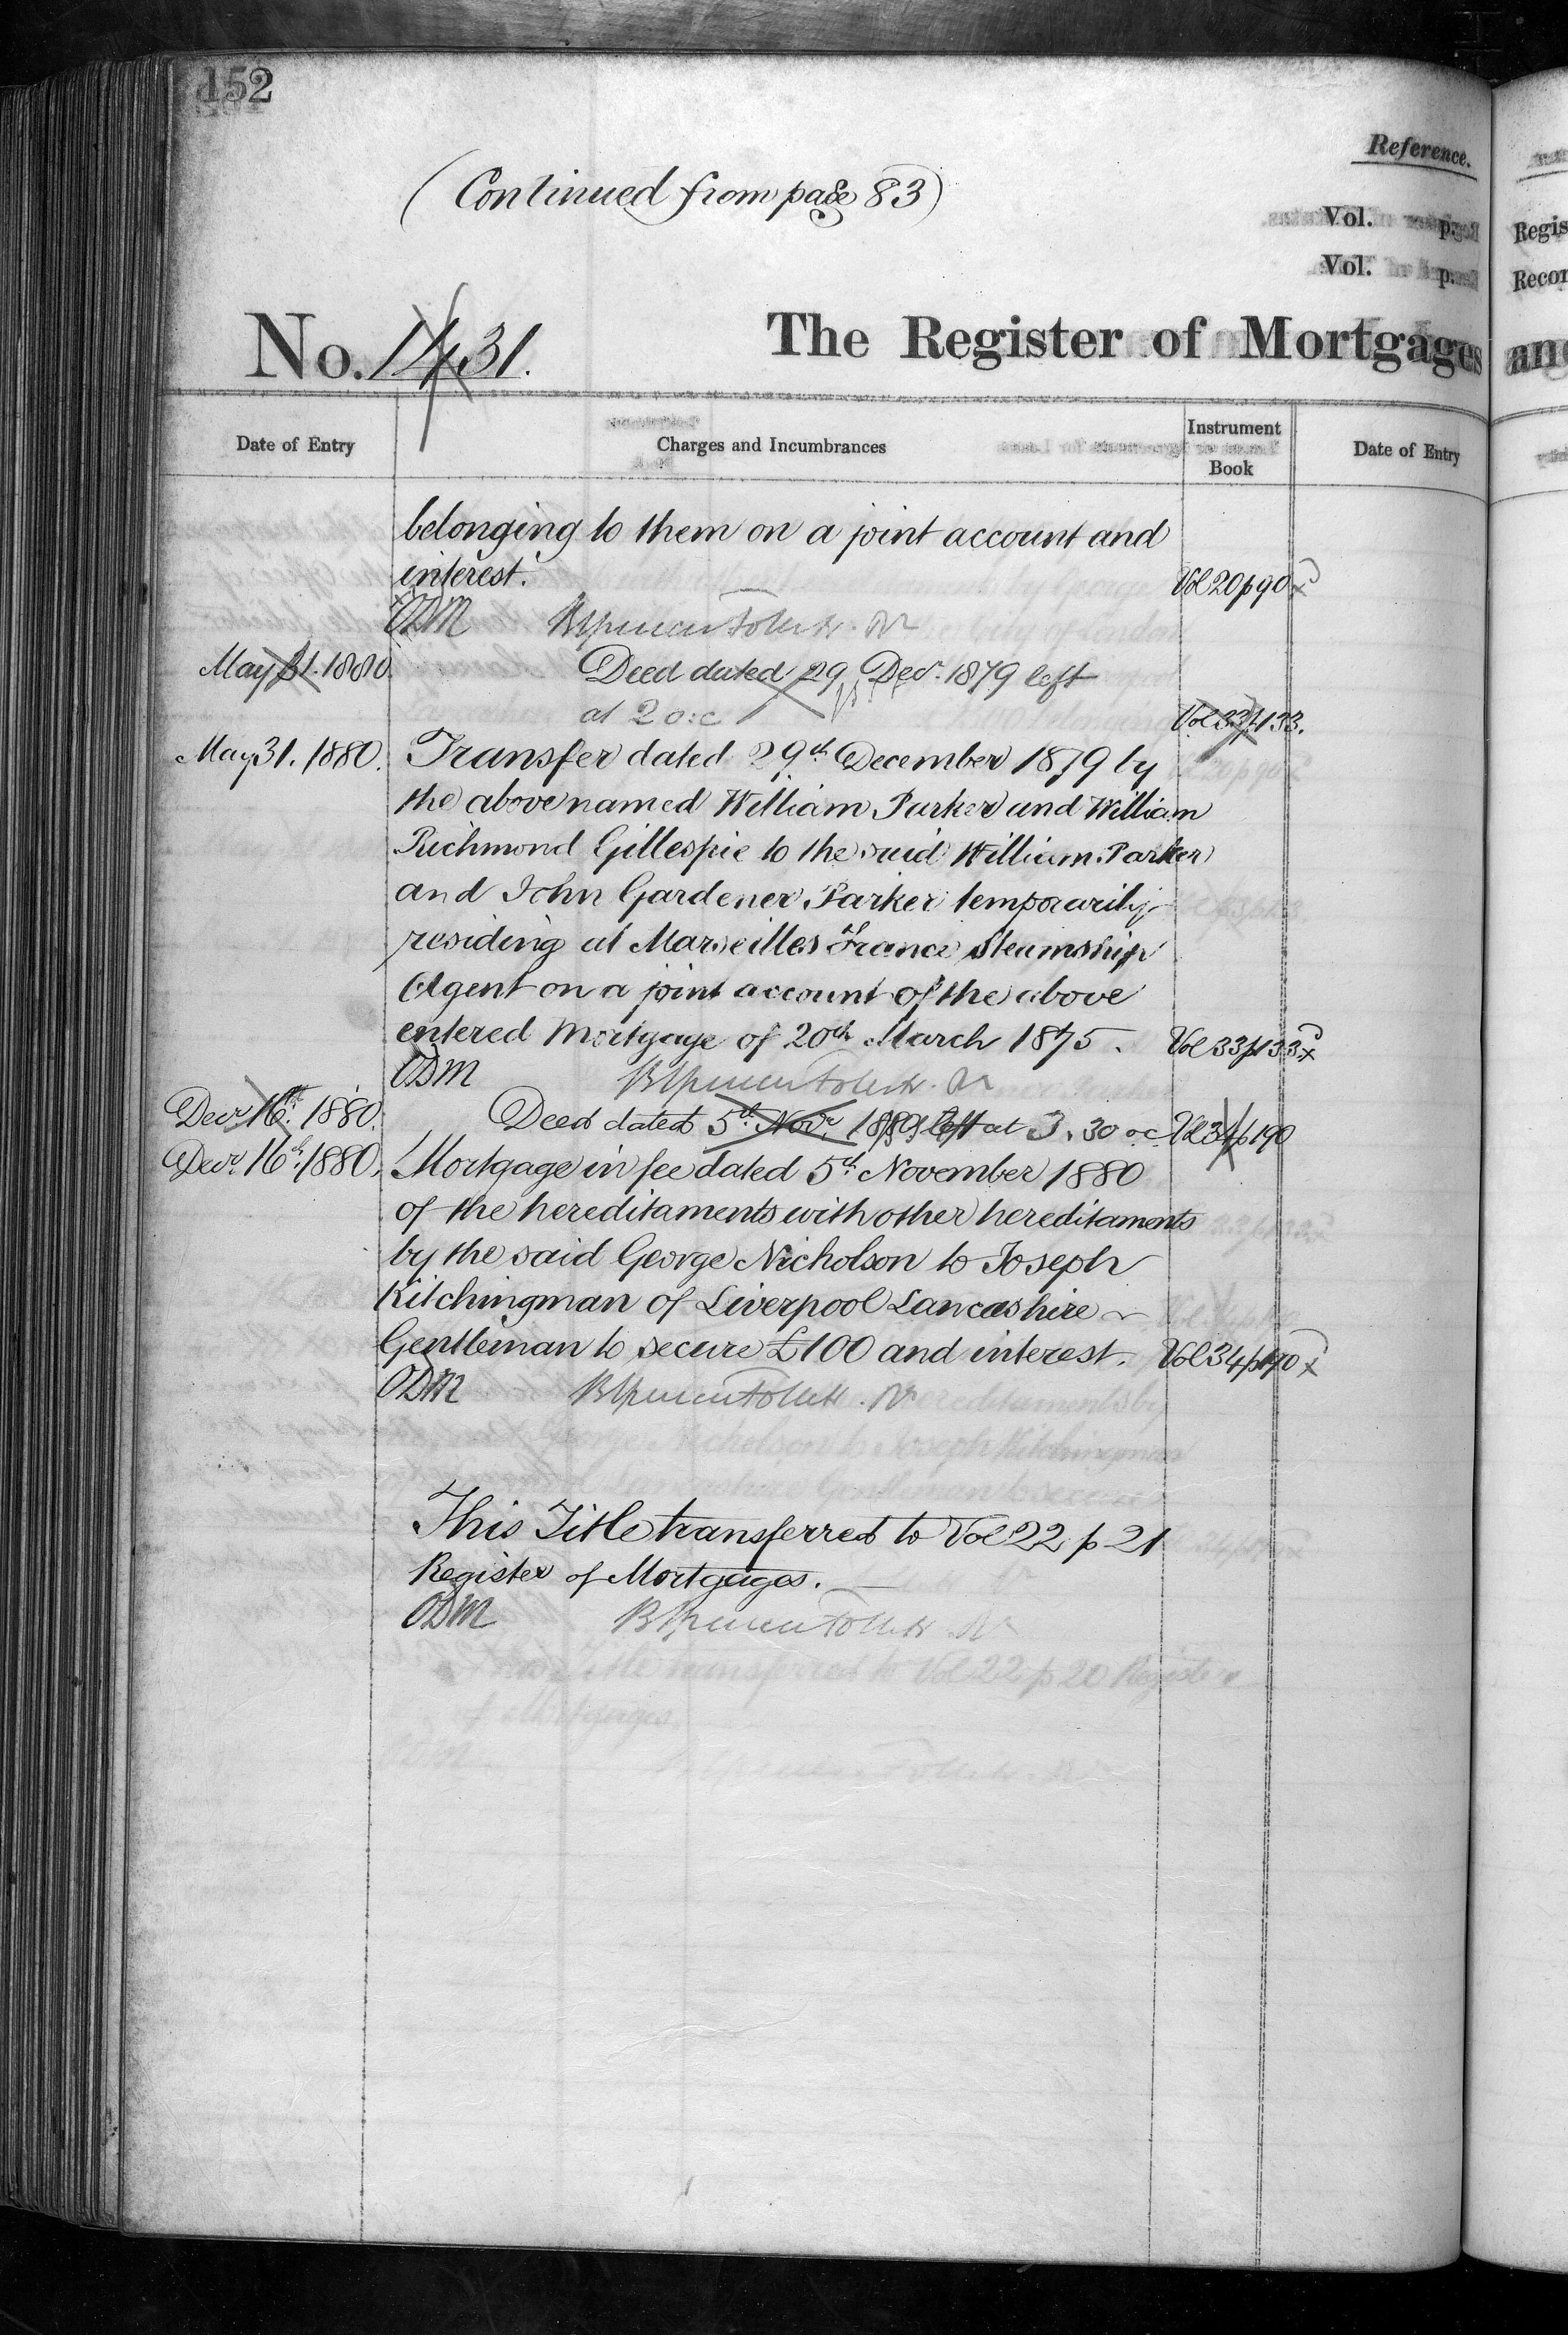 152
(Continued from page 83)
Reference.
Vol. p.
Vol. p.
Regis
Recor
No. 1431.
The Register of Mortgages and
Date of Entry
Charges and Incumbrances
Instrument Book
Date of Entry
belonging to them on a joint account and
interest. Vol 20 p 90 x
ODM
May 31. 1880. Deed dated 29 Decr. 1879 left
at 2 o.c Vol 33 p 133.
May 31. 1880. Transfer dated 29th December 1879 by
the above named William Parker and William
Richmond Gillespie to the said William Parker
and John Gardener Parker temporarily
residing at Marseilles France Steamship
Agent on a joint account of the above
entered Mortgage of 20th March 1875. Vol 33 p 133 x
ODM
Decr 16th. 1880. Deed dated 5th Novr. left at 3.30 oc Vol 34 p 190
Decr. 16th. 1880. Mortgage in fee dated 5th November 1880
of the hereditaments with other hereditaments
by the said George Nicholson to Joseph
Kitchingman of Liverpool Lancashire
Gentleman to secure £100 and interest. Vol 34 p 190 x
ODM
This Title transferred to Vol 22 p 21
Register of Mortgages.
ODM